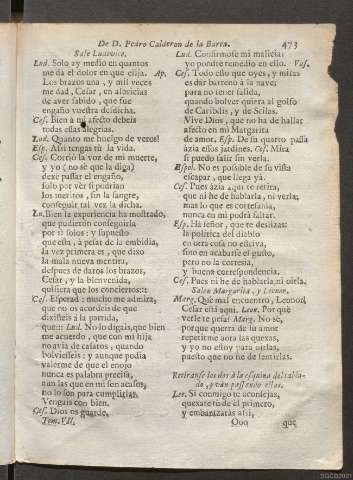 De D. Pedro Calderon de la Barca. 473
Sale Ludovico.
Lud. Solo ay medio en quantos
me dà el dolor en que elija. Ap.
Los brazos una, y mil veces
me dad, Cesar, en albricias
de aver sabido, que fue
engaño vuestra desdicha.
Ces. Bien à mi afecto debeis
todas estas alegrias.
Lud. Quanto me huelgo de veros!
Esp. Assi tengas tù la vida.
Ces. Corriò la voz de mi muerte,
y yo (no sè que la diga)
dexè passar el engaño,
solo por vèr si podrian
los meritos, sin la sangre,
conseguir tal vez la dicha.
Lu. Bien la experiencia ha mostrado,
que pudieron conseguirla
por sì solos: y supuesto
que esta, à pesar de la embidia,
la vez primera es, que dixo
la mala nueva mentira,
despues de daros los brazos,
Cesar, y la bienvenida,
quisiera que los conciertos::
Ces. Esperad: mucho me admira,
que no os acordeis de que
dixisteis à la partida,
que:: Lud. No lo digais, que bien
me acuerdo, que con mi hija
no avia de casaros, quando
bolviesseis: y aunque podia
valerme de que el enojo
nunca es palabra precisa,
aun las que en mi son acasos,
no lo son para cumplirlas.
Vengais con bien.
Ces. Dios os guarde,
Tom. VII.
Lud. Confirmòse mi malicia;
yo pondrè remedio en ello. Vas.
Ces. Todo esto que oyes, y miras
es dàr barreno à la nave;
para no tener salida,
quando bolver quiera al golfo
de Caribdis, y de Scilas.
Vive Dios, que no ha de hallar
afecto en mi Margarita
de amor. Esp. De su quarto passa
àzia essos jardines. Ces. Mira
si puedo salir sin verla.
Espol. No es possible de su vista
escapar, que llega yà.
Ces. Pues àzia aqui te retira,
que ni he de hablarla, ni verla;
mas lo que es cortesania,
nunca en mi podrà faltar.
Esp. Ha señor, que te deslizas:
la politica del diablo
en otra cosa no estriva,
sino en acabarse el gusto,
pero no la cortesia,
y buena correspondencia.
Ces. Pues ni he de hablarla, ni oirla.
Salen Margarita, y Leonor.
Marg. Què mal encuentro, Leonor,
Cesar està aqui. Leon. Por què
verle te pesa? Marg. No sè,
porque querrà de su amor
repetirme aora las quexas,
y yo no estoy para oirlas,
puesto que no he de sentirlas.
Retiranse los dos à la esquina del tabla-
do, y vàn passando ellas.
Leo. Si conmigo te aconsejas,
quexate tù de èl primero,
y embarazaràs assi,
Ooo que